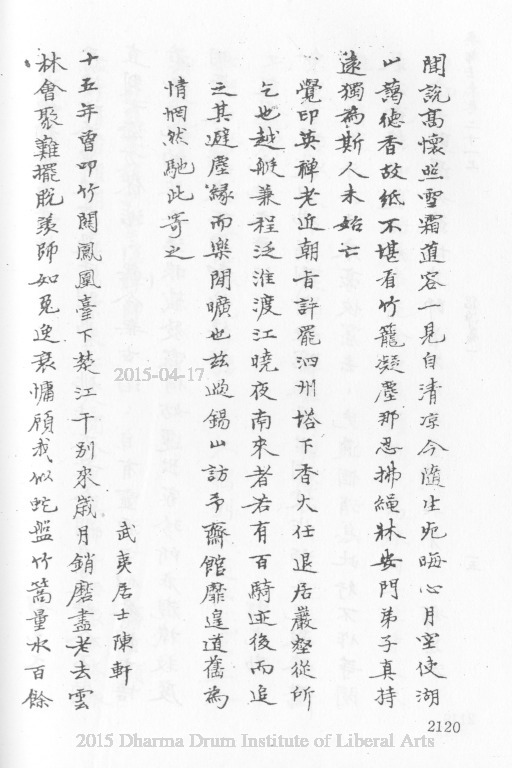 聞說高懷照雪霜道容一見自清凉今隨生死晦心月空使湖
山藹德香故紙不堪看竹簏凝塵那忍拂繩牀安門弟子真持
遠獨為斯人未始亡
覺印英禪老近朝旨許罷泗州塔下香火任退居巖壑從所
乞也越艇兼程泛淮渡江曉夜南來者若有百騎迹後而追
之其避塵緣而樂閒曠也茲過錫山訪予齋館靡遑道舊為
情惘然馳此寄之
武夷居士陳軒
十五年曾叩竹関鳳凰臺下楚江干别來歲月銷磨盡老去雲
林會聚難擺脫羨師如兔逸衰慵顧我似蛇盤竹篙量水百餘
2120
2015-04-17
2015 Dharma Drum Institute of Liberal Arts